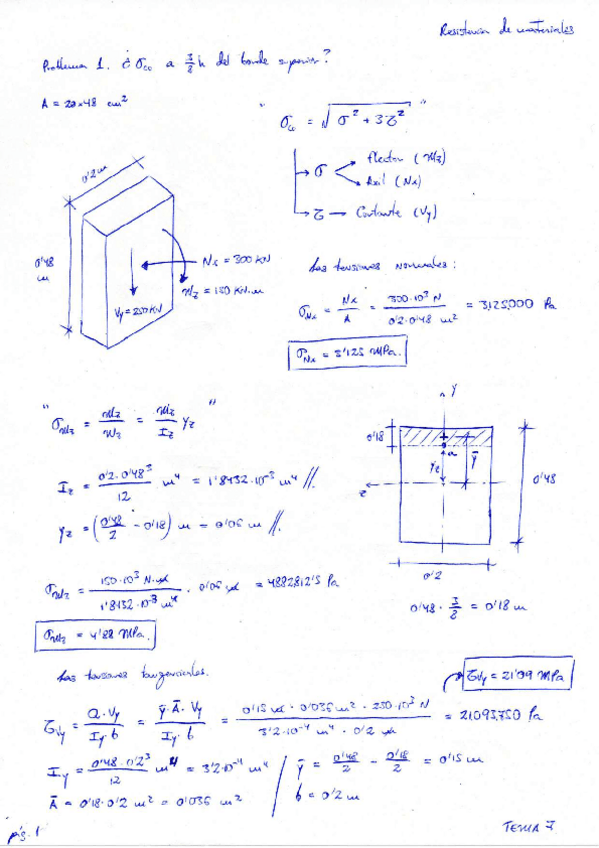 Resistencia de materiales
Problema 1. ¿ σco a 3/8 h del borde superior?
A = 20×48 cm²
" σco = √(σ² + 3τ²) "
→ σ → flector (Mz)
→ Axil (Nx)
→ τ → Cortante (Vy)
0'2 m
0'48 m
Nx = 300 KN
Mz = 150 KN·m
Vy = 250 KN
Las tensiones normales:
σNx = Nx/A = 300·10³ N / 0'2·0'48 m² = 3,125,000 Pa
σNx = 3'125 MPa.
" σMz = Mz/Wz = Mz/Iz Yz "
Iz = 0'2·0'48³/12 m⁴ = 1'8432·10⁻³ m⁴ //.
Yz = (0'48/2 - 0'18) m = 0'06 m //.
Y
0'18
a
Yz
ȳ
z
0'48
0'2
σMz = 150·10³ N·m / 1'8432·10⁻³ m⁴ · 0'06 m = 4882812'5 Pa
0'48 · 3/8 = 0'18 m
σMz = 4'88 MPa.
Las tensiones tangenciales.
τVy = 21'09 MPa
τVy = Q·Vy / Iy·b = ȳ·Ā·Vy / Iy·b = 0'15 m · 0'036 m² · 250·10³ N / 3'2·10⁻⁴ m⁴ · 0'2 m = 21093,750 Pa
Iy = 0'48·0'2³/12 m⁴ = 3'2·10⁻⁴ m⁴ / ȳ = 0'48/2 - 0'18/2 = 0'15 m
Ā = 0'18·0'2 m² = 0'036 m² / b = 0'2 m
pág. 1
TEMA 7